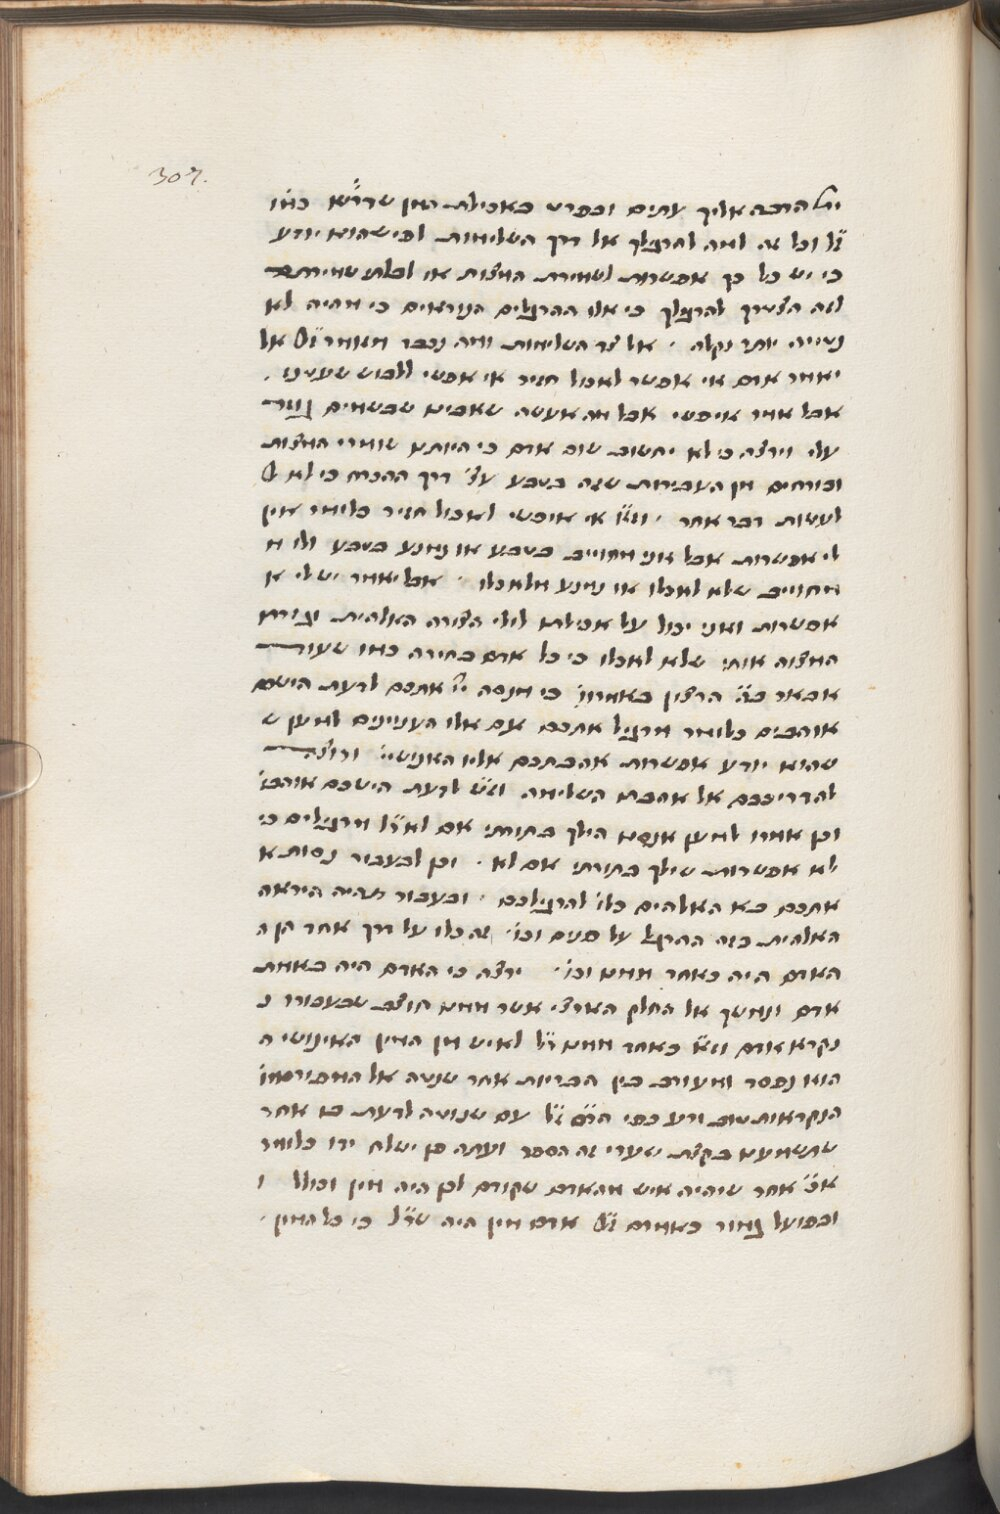 307.
יר׳ הרבה אליך עתים ובפרט באכילת המן שדרש׳ כמו
ז״ל וכל זה למה להרגילך אל דרך השלימות לפי שהוא יודע
כי יש כל כך אפשרות לשמירת המצות או לבלתי שמירתם
לזה הצטרך להרגילך כי אלו ההרגלים הנוראים כי מהיה לא
נטייה יותר נקלה · אל צד השלימות ומה נכבד מאמר ז״ל אל
יאמר אדם אי אפשר לאכול חזיר אי אפשי ללבוש שעטנז ·
אבל אמר איפשי אבל מה אעשה שאבי׳ שבשמים גזר
עלי וירצה כי לא יחשוב שום אדם כי היותם שומרי המצות
ובורחים מן העבירות שזה בטבע עצ׳ דרך ההכרח כי לא
לעשות דבר אחר · וז״ש אי איפשי לאכול חזיר כלומר אין
לי אפשרות אבל אני מחוייב בטבע או נמנע בטבע ולו מ
מחוייב שלא לאכלו או נמנע מלאכלו · אבל יאמר יש לי א
אפשרות ואני יכול על אכילתו לולי הצורה האלהית וגזרת
המצוה אותי שלא לאכלו כי כל אדם בחירה כמו שעוד
אבאר בע״ה הרצון באמרו׳ כי מנסה י״י אתכם לדעת הישכם
אוהבים כלומר מרגיל אתכם עם אלו העניינים למען ש
שהוא יודע אפשרות אהבתכם אליו האנושי׳ ורוצה
להדריככם אל אהבתו השלימה וז״ש לדעת הישכם אוהבי׳
וכן אמרו למען אנסנו הילך בתורתי אם לא ז״ל מרגילים כי
לא אפשרות שילך בתורתי אם לא · וכן לבעבור נסות א
אתכם בא האלהים כלו׳ להרגילכם · ובעבור תהיה היראה
האלהית בזה ההרגל על פנים וכו׳ זה כלו על דרך אחד הן ה
האדם היה כאחד ממנו וכו׳ · ירצה כי האדם היה באמת
אדם ונמשך אל החלק הארצי אשר ממנו חוצב שבעבורו נ
נקרא אדם וז״א כאחד ממנו ז״ל לאיש מן המין האינושי ה
הוא נפסד ומעורב בין הבריות אחר שנטה אל המפורסמו׳
הנקראות טוב ורע כפי הר״ם ז״ל עם שנוטה לדעת בו אחר
שתשמענו בקצת שערי זה הספר ועתה פן ישלח ידו כלומר
אפ׳ אחר שיהיה איש מהאדם שקודם לכן היה מין וכולל ו
ובפועל גמור כאמרם ז״ל אדם מין היה שר״ל כי כל המין ·